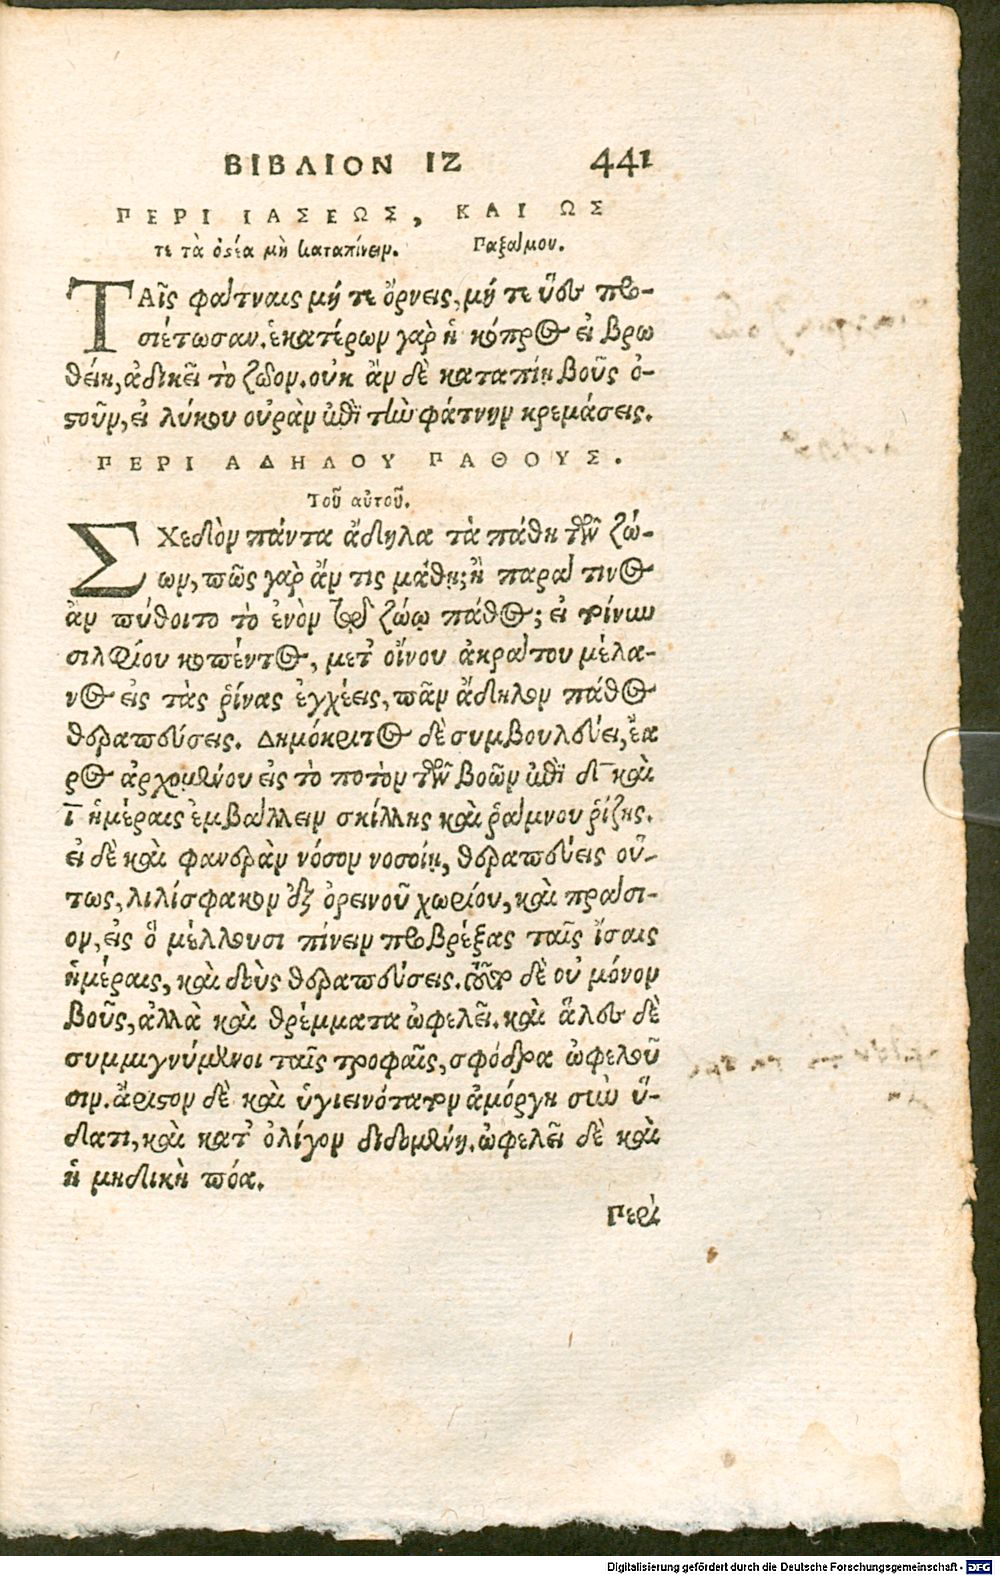 ΒΙΒΛΙΟΝ ΙΖ 441
ΠΕΡΙ ΙΑΣΕΩΣ, ΚΑΙ ΩΣ
τε τὰ ὀστέα μὴ καταπίνειν. Παξάμου.
ΤΑῖς φάτναις μή τε ὄρνεις, μή τε ὕες προ-
σιέτωσαν. ἑκατέρων γὰρ ἡ κόπρος εἰ βρω
θείη, ἀδικεῖ τὸ ζῶον. οὐκ ἂν δὲ καταπίῃ βοῦς ὀ-
στοῦν, εἰ λύκου οὐρὰν ἐπὶ τὴν φάτνην κρεμάσεις.
ΠΕΡΙ ΑΔΗΛΟΥ ΠΑΘΟΥΣ.
Τοῦ αὐτοῦ.
ΣΧεδὸν πάντα ἄδηλα τὰ πάθη τῶν ζώ-
ων, πῶς γὰρ ἄν τις μάθῃ; ἢ παρά τινος
ἂν πύθοιτο τὸ ἐνὸν τῷ ζώῳ πάθος; εἰ ῥίναν
σιλφίου κοπέντος, μετ' οἴνου ἀκράτου μέλα-
νος εἰς τὰς ῥίνας ἐγχέεις, πᾶν ἄδηλον πάθος
θεραπεύσεις. Δημόκριτος δὲ συμβουλεύει, ἔα
ρος ἀρχομένου εἰς τὸ ποτὸν τῶν βοῶν ἐπὶ δ̄ καὶ
ῑ ἡμέραις ἐμβάλλειν σκίλλης καὶ ῥάμνου ῥίζης.
εἰ δὲ καὶ φανερὰν νόσον νοσοίη, θεραπεύεις οὕ-
τως, λιλίσφακον ἐξ ὀρεινοῦ χωρίου, καὶ πράσι-
ον, εἰς ὃ μέλλουσι πίνειν προβρέξας ταῖς ἴσαις
ἡμέραις, καὶ θεραπεύσεις. τοῦτο δὲ οὐ μόνον
βοῦς, ἀλλὰ καὶ θρέμματα ὠφελεῖ. καὶ ἅλες δὲ
συμμιγνύμενοι ταῖς τροφαῖς, σφόδρα ὠφελοῦ
σιν. ἄριστον δὲ καὶ ὑγιεινότατον ἀμόργη σὺν ὕ-
δατι, καὶ κατ' ὀλίγον διδομένη. ὠφελεῖ δὲ καὶ
ἡ μηδικὴ πόα.
Περὶ
Digitalisierung gefördert durch die Deutsche Forschungsgemeinschaft - DFG